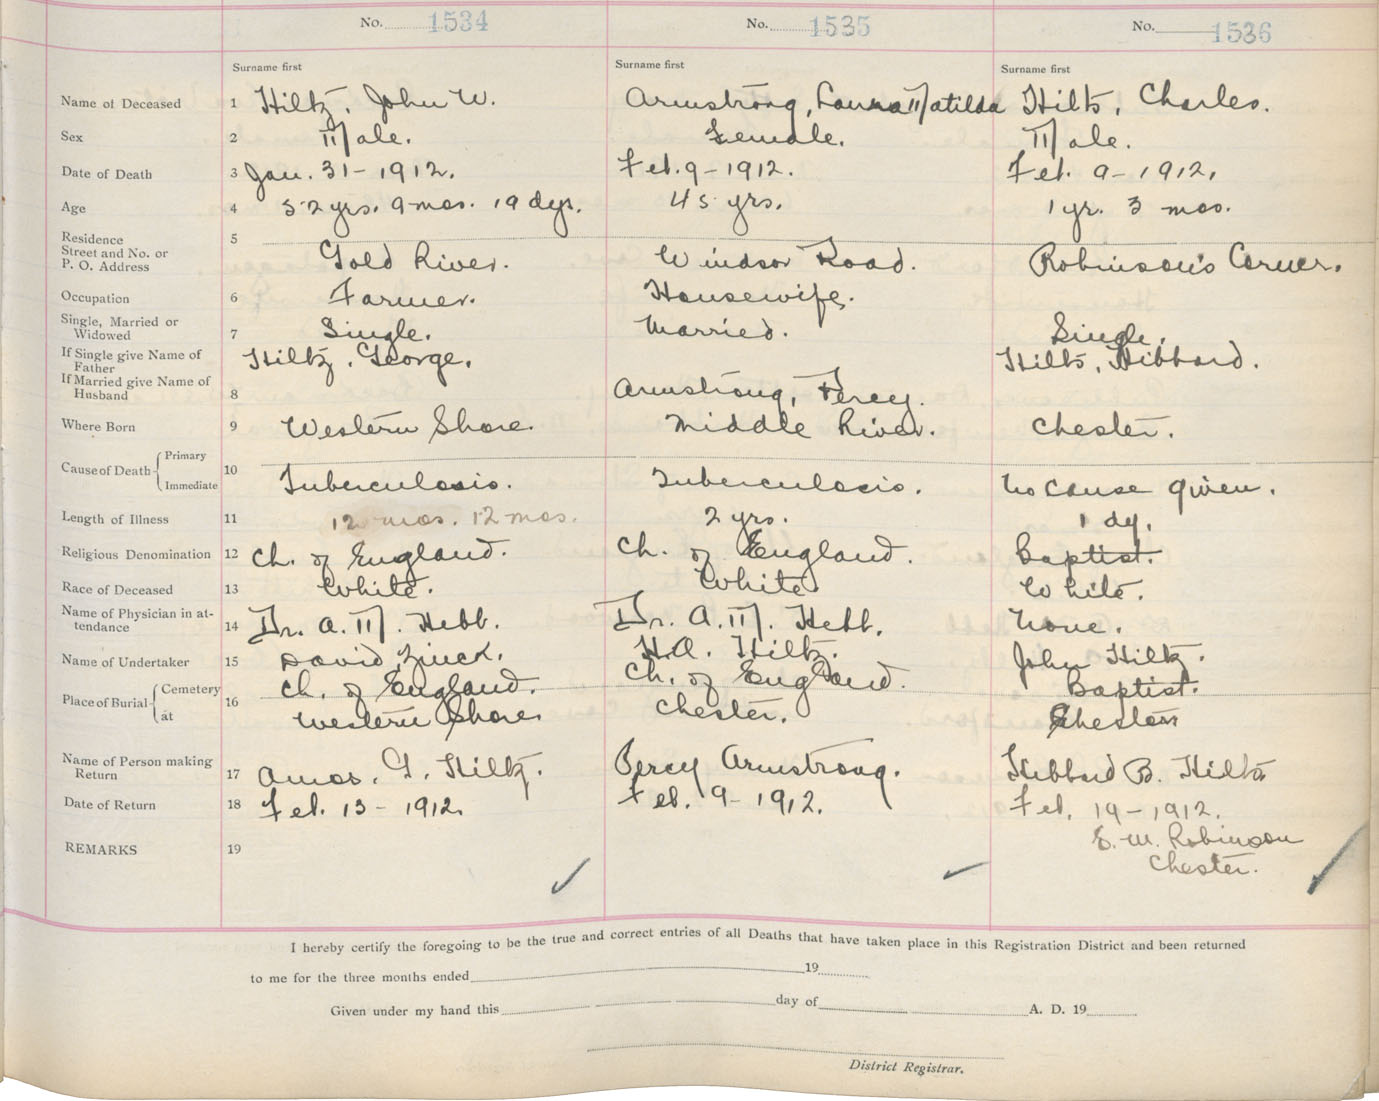 No. 1534 No. 1535 No. 1536
Surname first Surname first Surname first
Name of Deceased 1 Hiltz, John W. Armstrong, Laura Matilda Hilts, Charles.
Sex 2 Male. Female. Male.
Date of Death 3 Jan. 31 - 1912. Feb. 9 - 1912. Feb. 9 - 1912.
Age 4 52 yrs. 9 mos. 19 dys. 45 yrs. 1 yr. 3 mos.
Residence Street and No. or P. O. Address 5 Gold River. Windsor Road. Robinson's Corner.
Occupation 6 Farmer. Housewife.
Single, Married or Widowed 7 Single. Married. Single.
If Single give Name of Father Hiltz, George. Hilts, Hibbard.
If Married give Name of Husband 8 Armstrong, Percy.
Where Born 9 Western Shore. Middle River. Chester.
Cause of Death { Primary Immediate 10 Tuberculosis. Tuberculosis. No cause given.
Length of Illness 11 12 mos. 12 mos. 2 yrs. 1 dy.
Religious Denomination 12 Ch. of England. Ch. of England. Baptist.
Race of Deceased 13 White. White White.
Name of Physician in attendance 14 Dr. A. M. Hebb. Dr. A. M. Hebb. None.
Name of Undertaker 15 David Zinck. H. A. Hiltz. John Hiltz.
Place of Burial { Cemetery 16 Ch. of England. Ch. of England. Baptist.
at Western Shore. Chester. Chester
Name of Person making Return 17 Amos. G. Hiltz. Percy Armstrong. Hibbard B. Hilts
Date of Return 18 Feb. 13 - 1912. Feb. 9 - 1912. Feb. 19 - 1912.
REMARKS 19 S. M. Robinson
Chester.
I hereby certify the foregoing to be the true and correct entries of all Deaths that have taken place in this Registration District and been returned
to me for the three months ended 19
Given under my hand this day of A. D. 19
District Registrar.